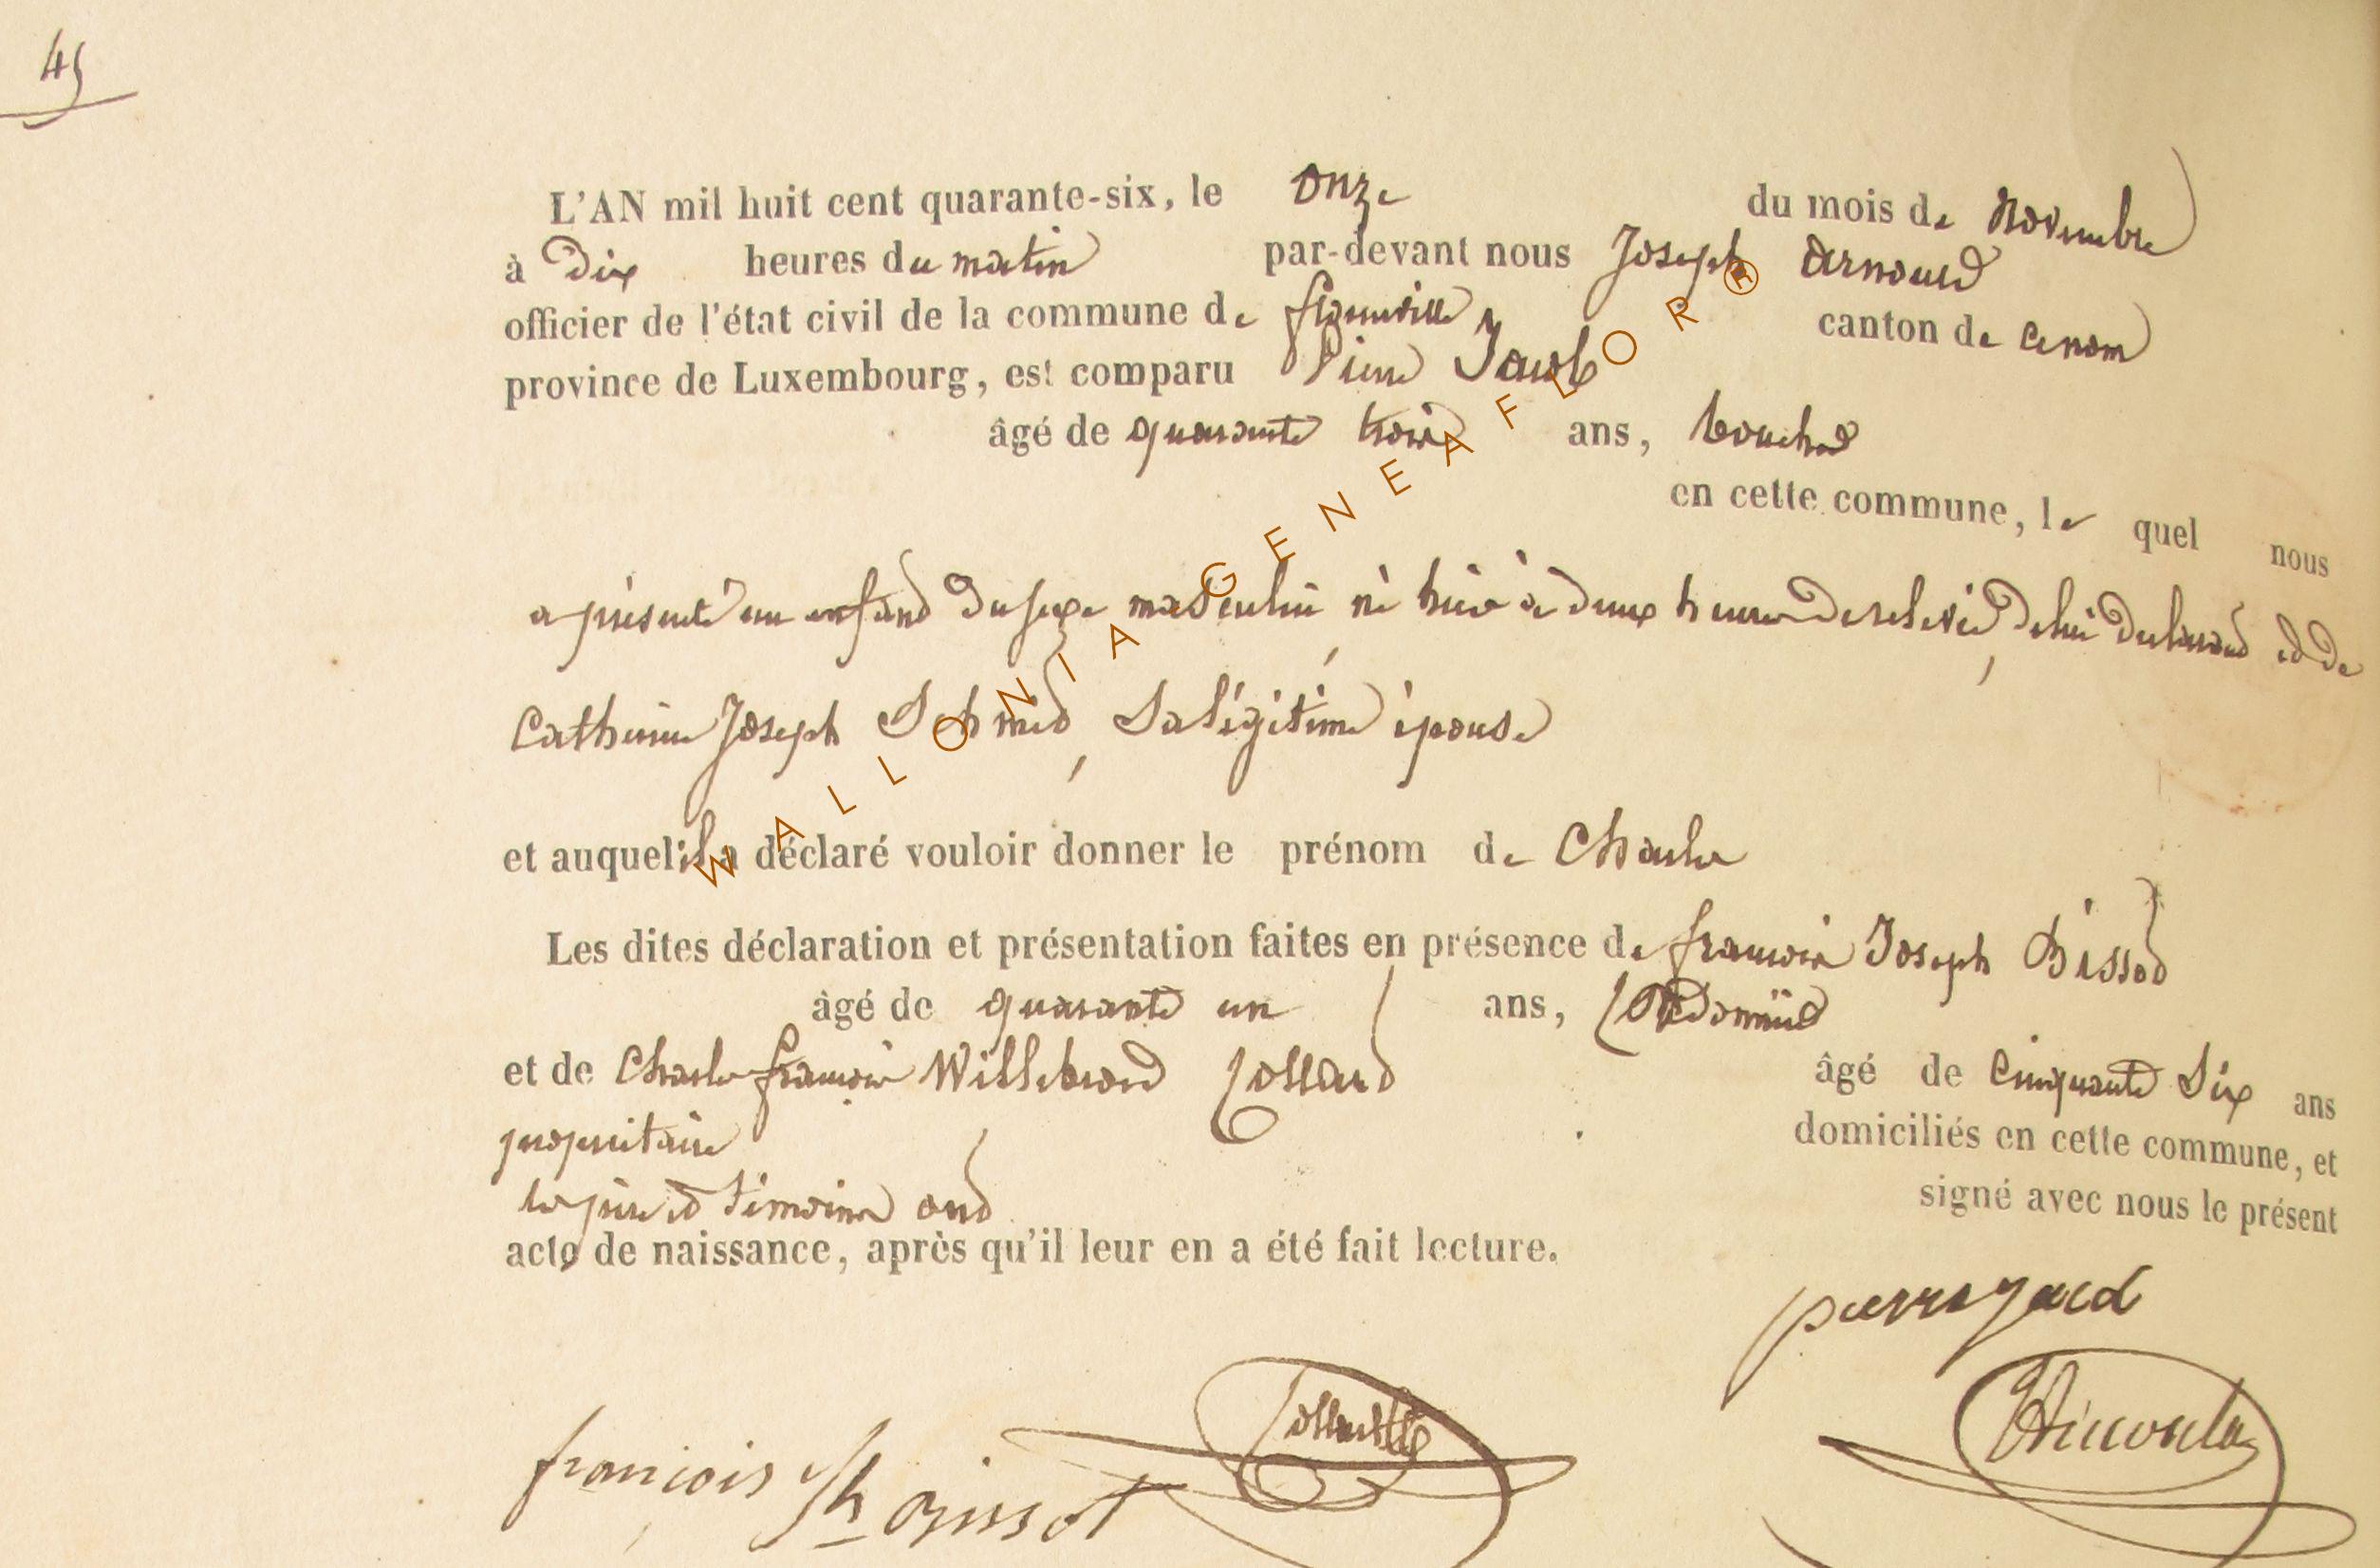 45
L'AN mil huit cent quarante-six, le onze du mois de novembre
à dix heures du matin par-devant nous Joseph Arnould
officier de l'état civil de la commune de canton de
province de Luxembourg, est comparu Pierre Jacob
âgé de quarante trois ans, boucher
en cette commune, le quel nous
a présenté un enfant du sexe masculin né hier à deux heures de relevée, de lui déclarant et de
Catherine Joseph Schmid, sa légitime épouse
et auquel il a déclaré vouloir donner le prénom de Charles
Les dites déclaration et présentation faites en présence de françois Joseph
âgé de quarante un ans, Cordonnier
et de Charles françois Willebrord Collard âgé de Cinquante Six ans
propriétaire domiciliés en cette commune, et
les père et témoins ont signé avec nous le présent
acte de naissance, après qu'il leur en a été fait lecture.
françois
WALLONIA GENEAFLOR®